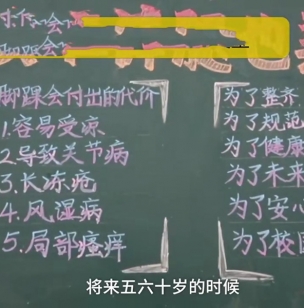 脚踝会付出的代价
1.容易受凉
2.导致关节病
3.长冻疮
4.风湿病
5.局部瘙痒
为了整齐
为了规范
为了健康
为了未来
为了安心
为了校园
将来五六十岁的时候